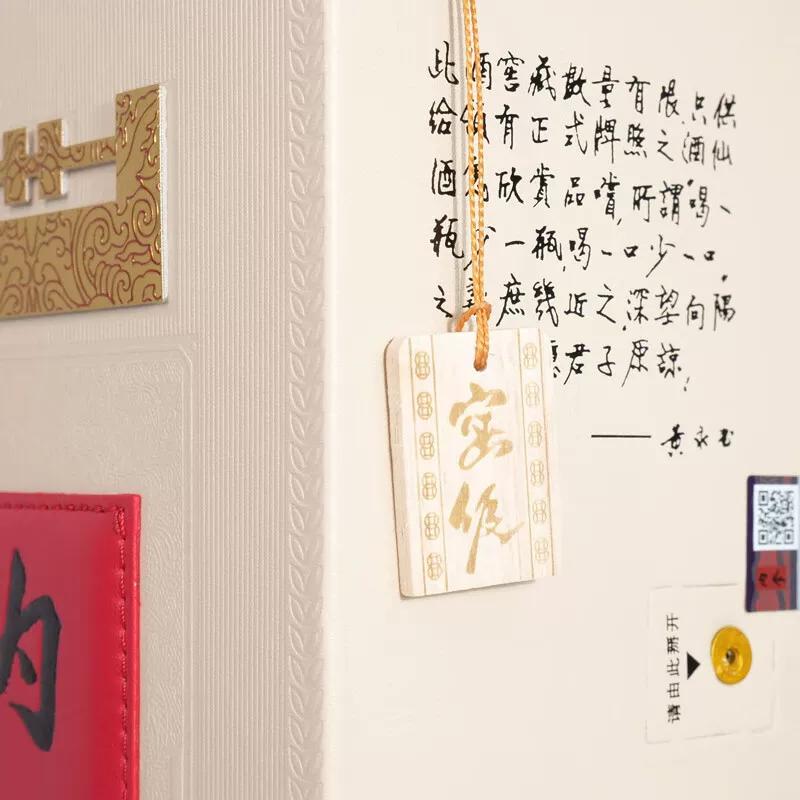 此酒窖藏數量有限,只供
給領有正式牌照之酒仙
酒為欣賞品嚐,所謂喝一
瓶少一瓶,喝一口少一口,
之庶幾近之,深望向隅
君子原諒!
——黃永玉
请由此掰开
内